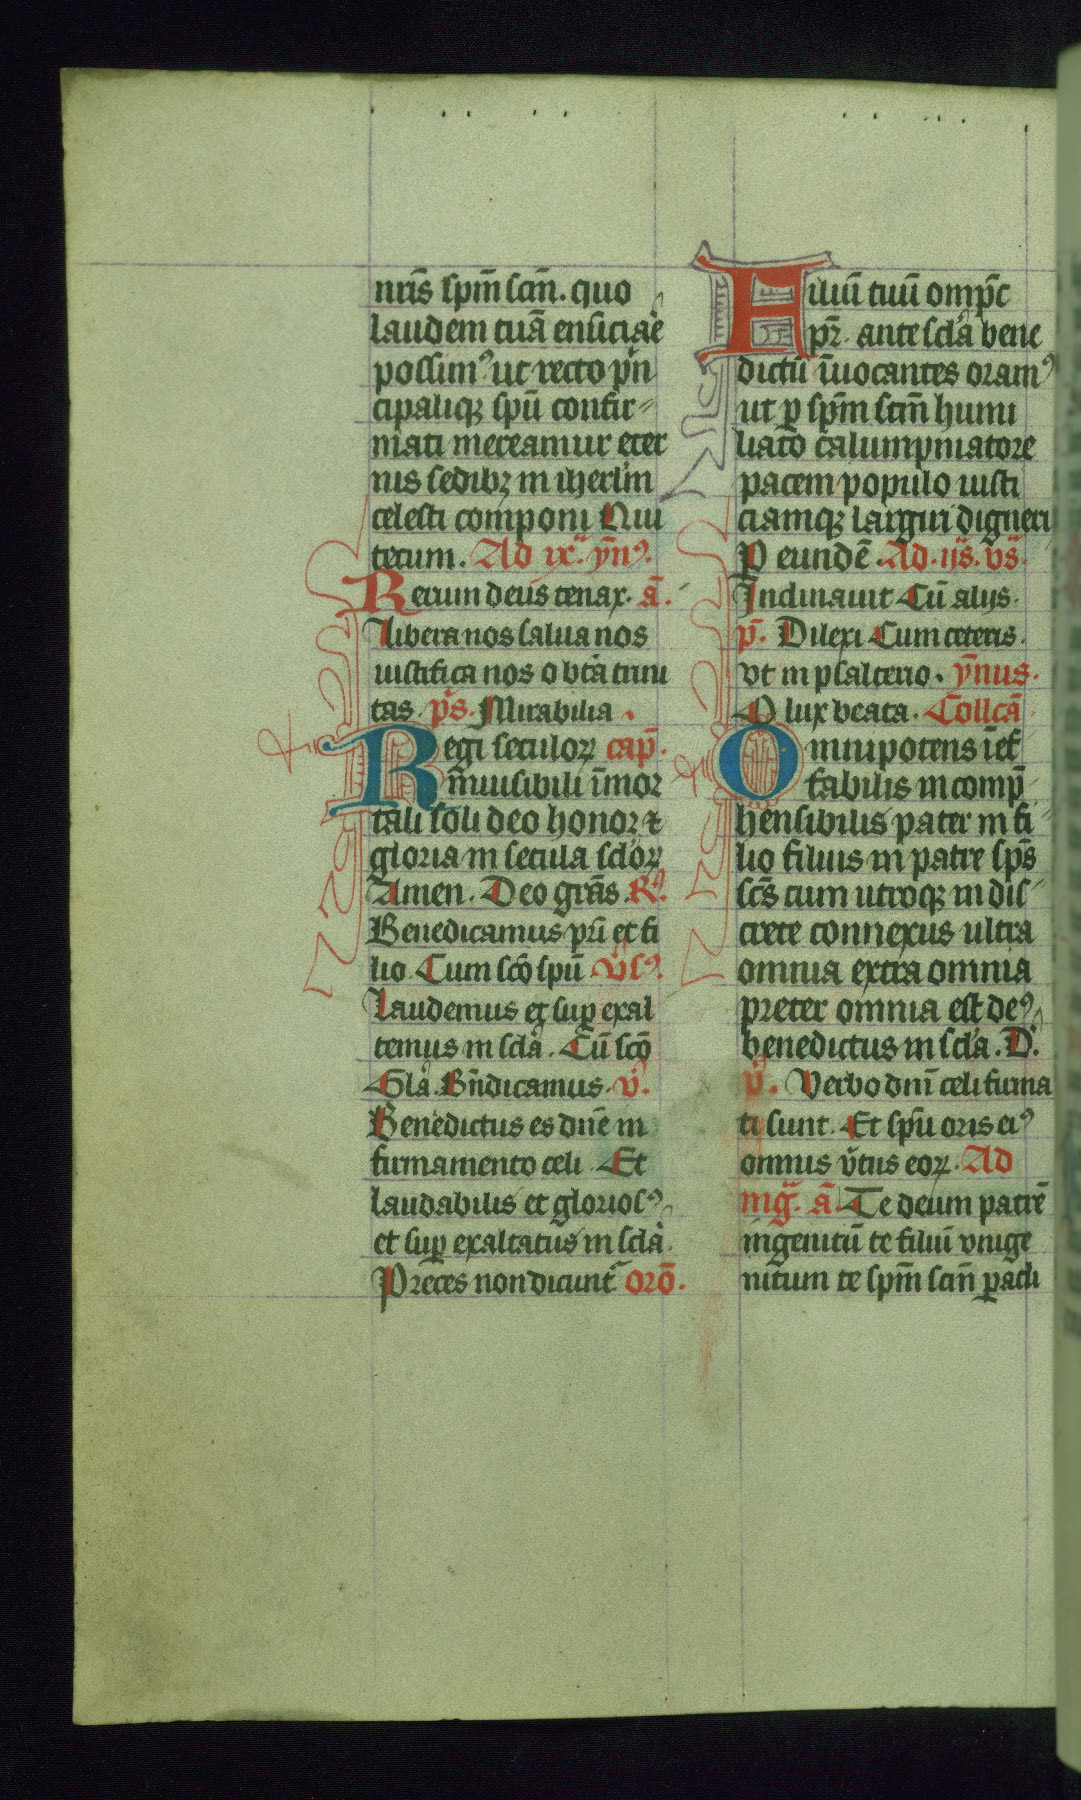 nr̄is sp̄m sc̄m. quo
laudem tuā ensiciaē
possimꝰ ut recto pin
cipaliqꝫ spū confir⸗
mati mereamur eter
nis sedibꝫ in iherlm̄
celesti componi Qui
tecum. Ad ix. ẏn̄ꝰ.
Rerum deus tenax. ā.
Libera nos salua nos
iustifica nos o btā trini
tas. ps. Mirabilia.
Regi seculoꝝ cap̄.
īnuisibili īmor
tali soli deo honor ⁊
gloria in secula scl̄oꝝ
Amen. Deo grās. Rꝰ.
Benedicamus prū et fi
lio. Cum sc̄o spū v̄sꝰ.
Laudemus et suꝑ exal
temus in scl̄a. Cū sc̄o
Glā. Bn̄dicamus. v̄.
Benedictus es dn̄e in
firmamento celi. Et
laudabilis et gloriosꝰ
et suꝑ exaltatus in scl̄a.
Preces non dicunt᷑ orō.
Filiū tuū omp̄c
pr̄. ante scl̄a bene
dictū īuocantes oramꝰ
ut ꝑ sp̄m sc̄m humi
liato calumpniatore
pacem populo iusti
ciamqꝫ largiri digneri
P eundē. Ad. ijs. vs̄.
Inclinauit Cū alijs.
p̄. Dilexi Cum ceteris.
vt in psalterio. ẏn̄us.
O lux beata. Collcā.
Omnipotens īef
fabilis incomp̄
hensibilis pater in fi⸗
lio filius in patre sp̄s
sc̄s cum utroqꝫ in dis⸗
crete connexus ultra
omnia extra omnia
preter omnia est deꝰ
benedictus in scl̄a. D.
v̄. Verbo dn̄i celi firma
ti sunt. Et spū oris eiꝰ
omnis v̄tus eoꝝ. Ad
mg̃. ā. Te deum patrē
ingenitū te filiū vnige
nitum te sp̄m sc̄m ꝑacli